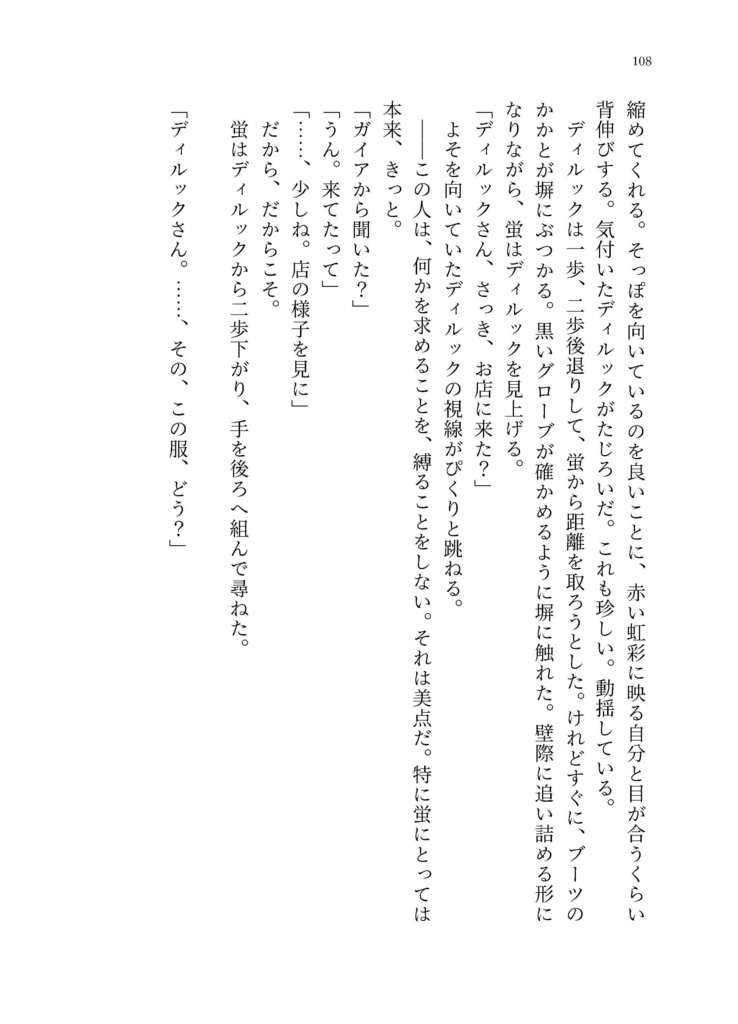 108
縮めてくれる。そっぽを向いているのを良いことに、赤い虹彩に映る自分と目が合うくらい
背伸びする。気付いたディルックがたじろいだ。これも珍しい。動揺している。
ディルックは一歩、二歩後退りして、蛍から距離を取ろうとした。けれどすぐに、ブーツの
かかとが塀にぶつかる。黒いグローブが確かめるように塀に触れた。壁際に追い詰める形に
なりながら、蛍はディルックを見上げる。
「ディルックさん、さっき、お店に来た？」
よそを向いていたディルックの視線がぴくりと跳ねる。
――この人は、何かを求めることを、縛ることをしない。それは美点だ。特に蛍にとっては
本来、きっと。
「ガイアから聞いた？」
「うん。来てたって」
「……、少しね。店の様子を見に」
だから、だからこそ。
蛍はディルックから二歩下がり、手を後ろへ組んで尋ねた。
「ディルックさん。……、その、この服、どう？」